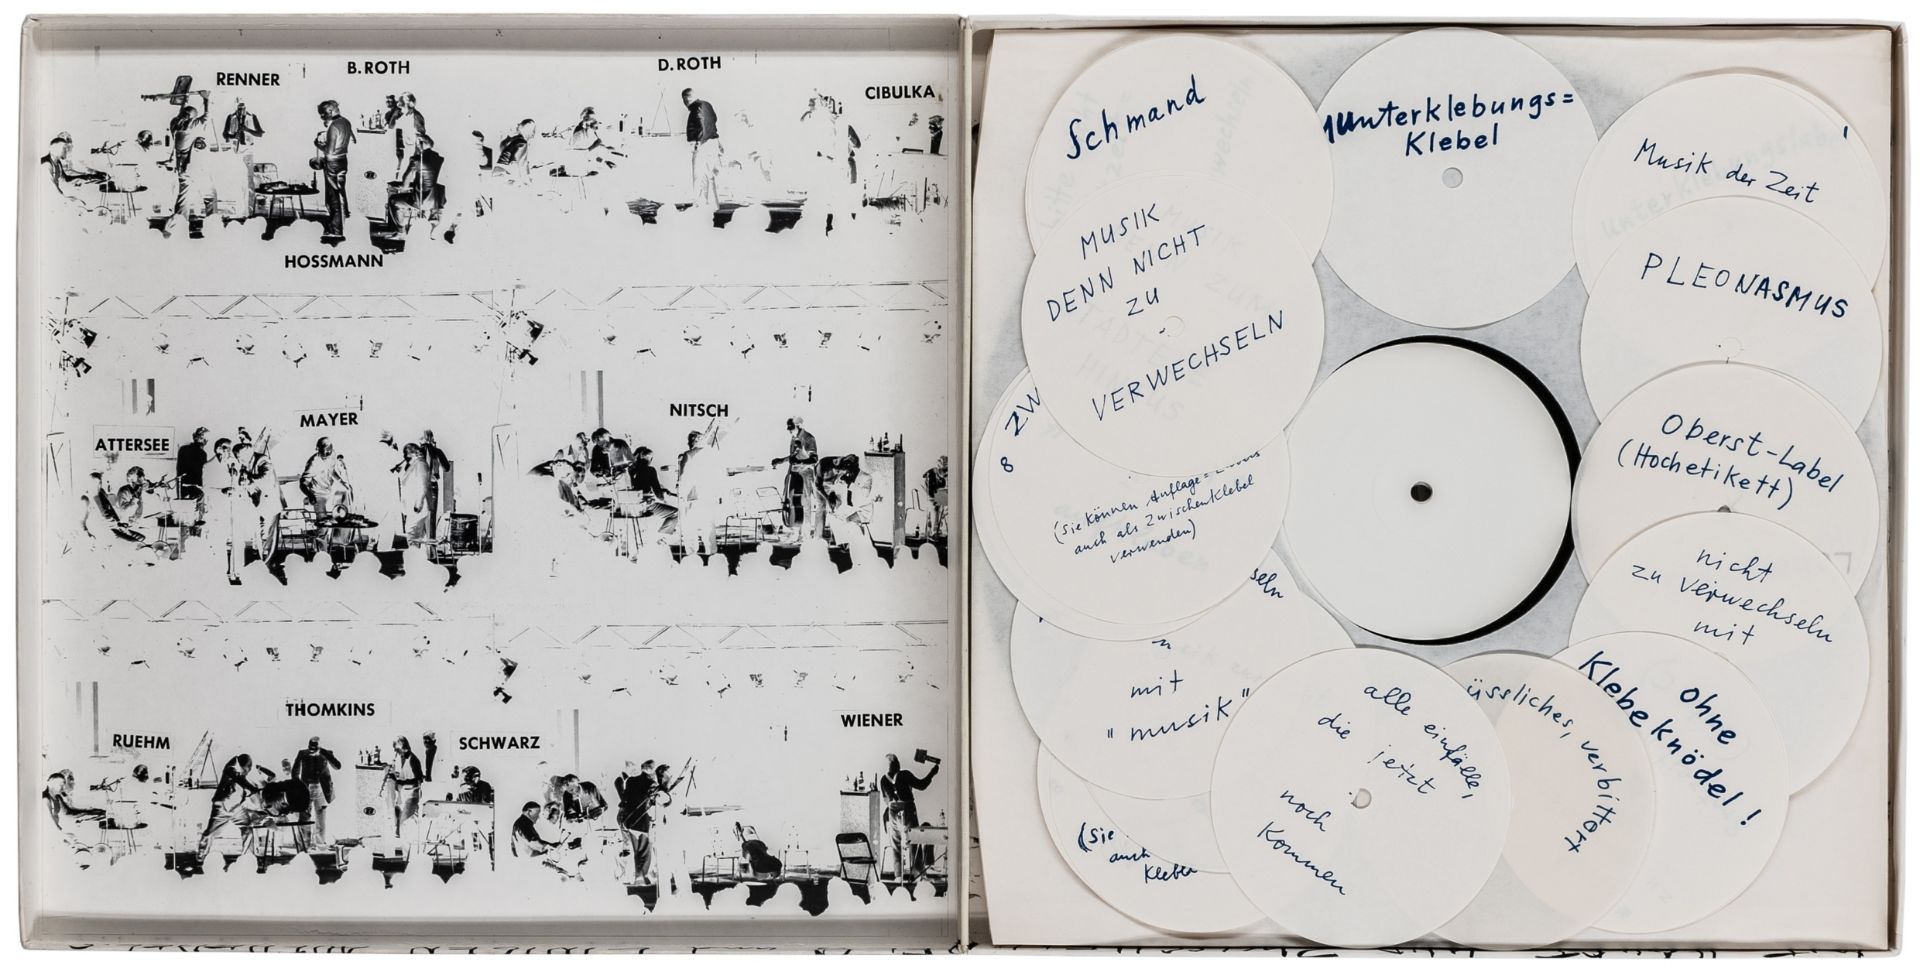 RENNER
B.ROTH
D.ROTH
CIBULKA
HOSSMANN
ATTERSEE
MAYER
NITSCH
RUEHM
THOMKINS
SCHWARZ
WIENER
Schmand
MUSIK
DENN NICHT
ZU
VERWECHSELN
ZW
8
(Sie können Auflage=
auch als Zwischenklebel
verwenden)
seln
mit
"musik"
(Sie
auch
Klebel
alle einfälle,
die jetzt
noch
kommen
üssliches, verbittert
ohne
Klebeknödel!
nicht
zu verwechseln
mit
Oberst-Label
(Hochetikett)
PLEONASMUS
Musik der Zeit
Unterklebungs=
Klebel